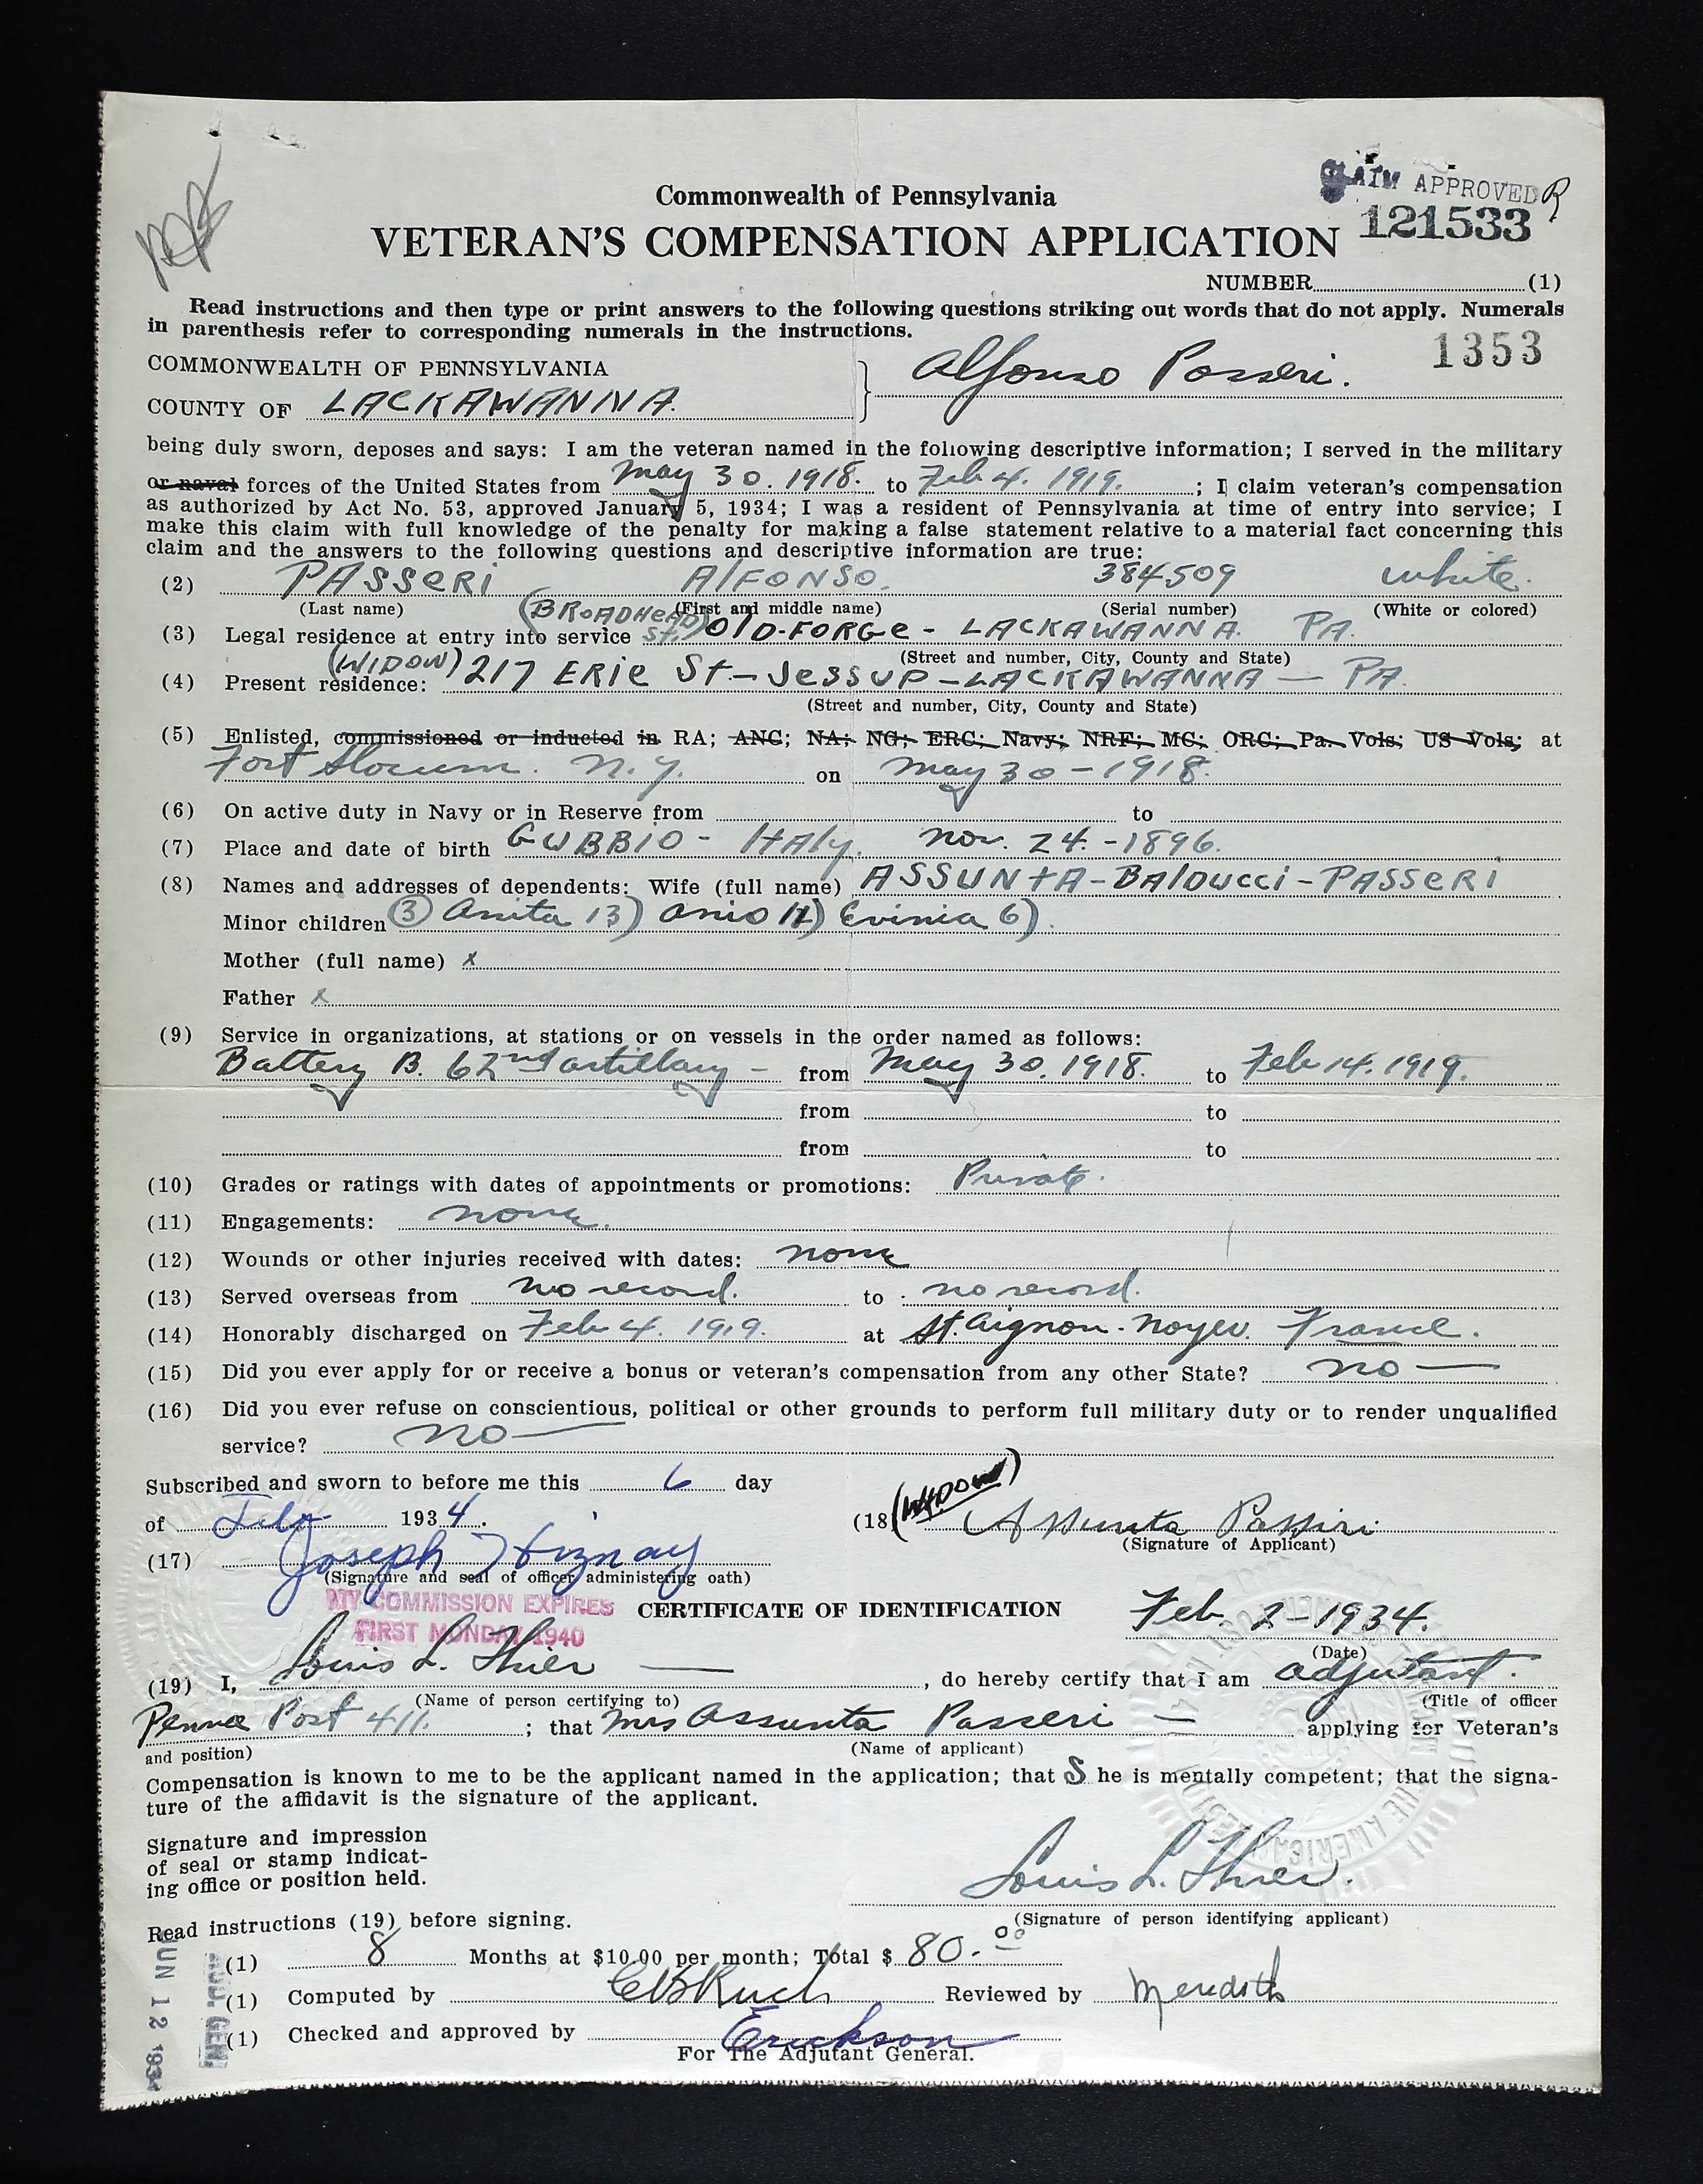 CLAIM APPROVED
Commonwealth of Pennsylvania
121533
VETERAN'S COMPENSATION APPLICATION
NUMBER (1)
Read instructions and then type or print answers to the following questions striking out words that do not apply. Numerals
in parenthesis refer to corresponding numerals in the instructions.
1353
COMMONWEALTH OF PENNSYLVANIA
Alfonso Passeri.
COUNTY OF LACKAWANNA.
being duly sworn, deposes and says: I am the veteran named in the following descriptive information; I served in the military
or naval forces of the United States from May 30. 1918. to Feb 4. 1919. ; I claim veteran's compensation
as authorized by Act No. 53, approved January 5, 1934; I was a resident of Pennsylvania at time of entry into service; I
make this claim with full knowledge of the penalty for making a false statement relative to a material fact concerning this
claim and the answers to the following questions and descriptive information are true:
(2) PASSERI AlFONSO. 384509 white.
(Last name) (First and middle name) (Serial number) (White or colored)
(BROADHEAD
(3) Legal residence at entry into service St.) OlD-FORGe - LACKAWANNA. PA.
(Street and number, City, County and State)
(WIDOW)
(4) Present residence: 217 ERie St - Jessup - LACKAWANNA - PA.
(Street and number, City, County and State)
(5) Enlisted, commissioned or inducted in RA; ANC; NA; NG; ERC; Navy; NRF; MC; ORC; Pa. Vols; US Vols; at
Fort Slocum. N.Y. on May 30 - 1918.
(6) On active duty in Navy or in Reserve from to
(7) Place and date of birth GUBBIO - ItAly. Nov. 24. - 1896.
(8) Names and addresses of dependents: Wife (full name) ASSUNtA - BAlDUCCi - PASSERI
Minor children (3) Anita 13) Anio 11) Evinia 6).
Mother (full name) x
Father x
(9) Service in organizations, at stations or on vessels in the order named as follows:
Battery B. 62nd artillary - from May 30. 1918. to Feb 14. 1919.
from to
from to
(10) Grades or ratings with dates of appointments or promotions: Private.
(11) Engagements: none.
(12) Wounds or other injuries received with dates: none
(13) Served overseas from no record. to no record.
(14) Honorably discharged on Feb 4. 1919. at St. Aignon - Noyer. France.
(15) Did you ever apply for or receive a bonus or veteran's compensation from any other State? no
(16) Did you ever refuse on conscientious, political or other grounds to perform full military duty or to render unqualified
service? no
Subscribed and sworn to before me this 6 day
of Feb 1934.
(18) (WIDOW) Assunta Passiri
(Signature of Applicant)
(17) Joseph Hiznay
(Signature and seal of officer administering oath)
MY COMMISSION EXPIRES
FIRST MONDAY 1940
CERTIFICATE OF IDENTIFICATION
Feb. 2 - 1934.
(Date)
(19) I, Louis L. Thier , do hereby certify that I am adjutant.
(Name of person certifying to) (Title of officer
Penna Post 411. ; that Mrs Assunta Passeri applying for Veteran's
and position) (Name of applicant)
Compensation is known to me to be the applicant named in the application; that S he is mentally competent; that the signa-
ture of the affidavit is the signature of the applicant.
Signature and impression
of seal or stamp indicat-
ing office or position held.
Louis L. Thier.
(Signature of person identifying applicant)
Read instructions (19) before signing.
(1) 8 Months at $10.00 per month; Total $ 80.00
(1) Computed by CBRuch Reviewed by Meredith
(1) Checked and approved by Erickson
For The Adjutant General.
JUN 12 1934
ADJ. GEN.